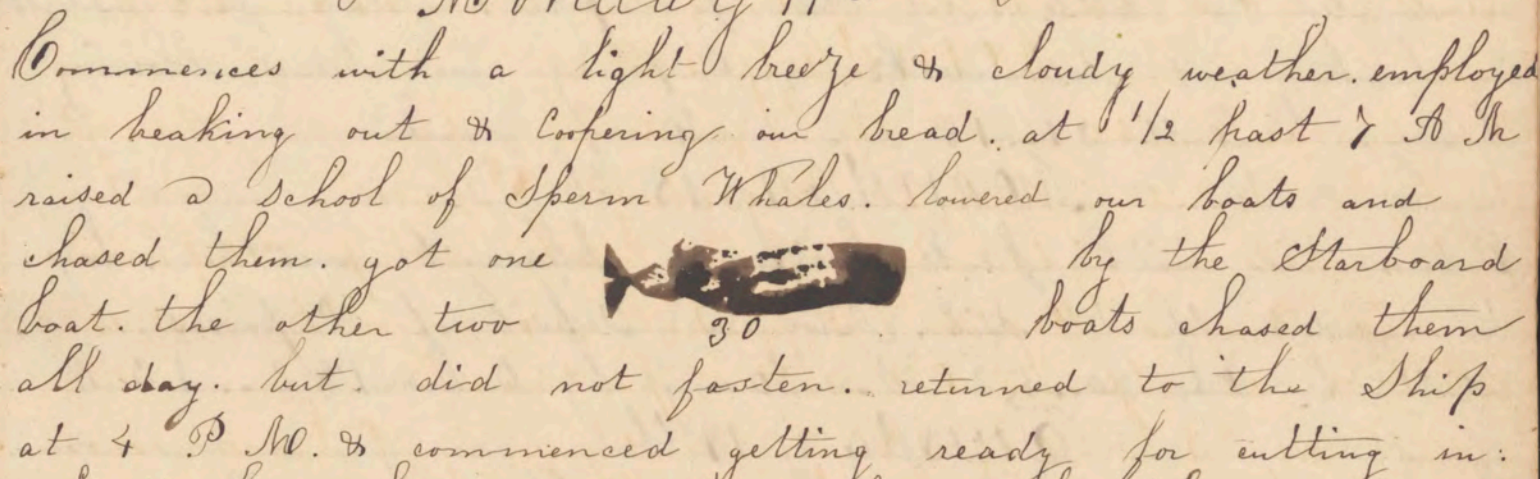 Monday 11
Commences with a light breeze & cloudy weather. employed
in breaking out & Coopering our bread. at 1/2 past 7 A M
raised a School of Sperm Whales. lowered our boats and
chased them. got one by the Starboard
boat. the other two 30 boats chased them
all day. but. did not fasten. returned to the Ship
at 4 P M. & commenced getting ready for cutting in: